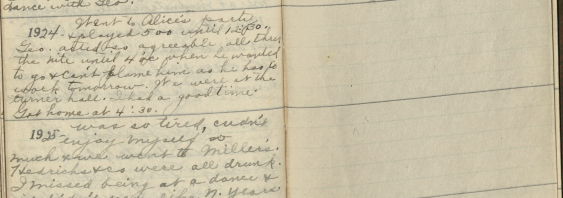 dance with Geo.
Went to Alice's party
1924- & played 500 until 12:30.
Geo. acted so agreeable all thru
the nite until 4 o'c when he wanted
to go & can't blame him as he has to
work tomorrow. We were at the
turner hall. I had a good time.
Got home at 4:30.
1925- was so tired, cudn't
enjoy myself so
much & we went to Miller's.
Hedrichs & co were all drunk.
I missed being at a dance &
like N. Years